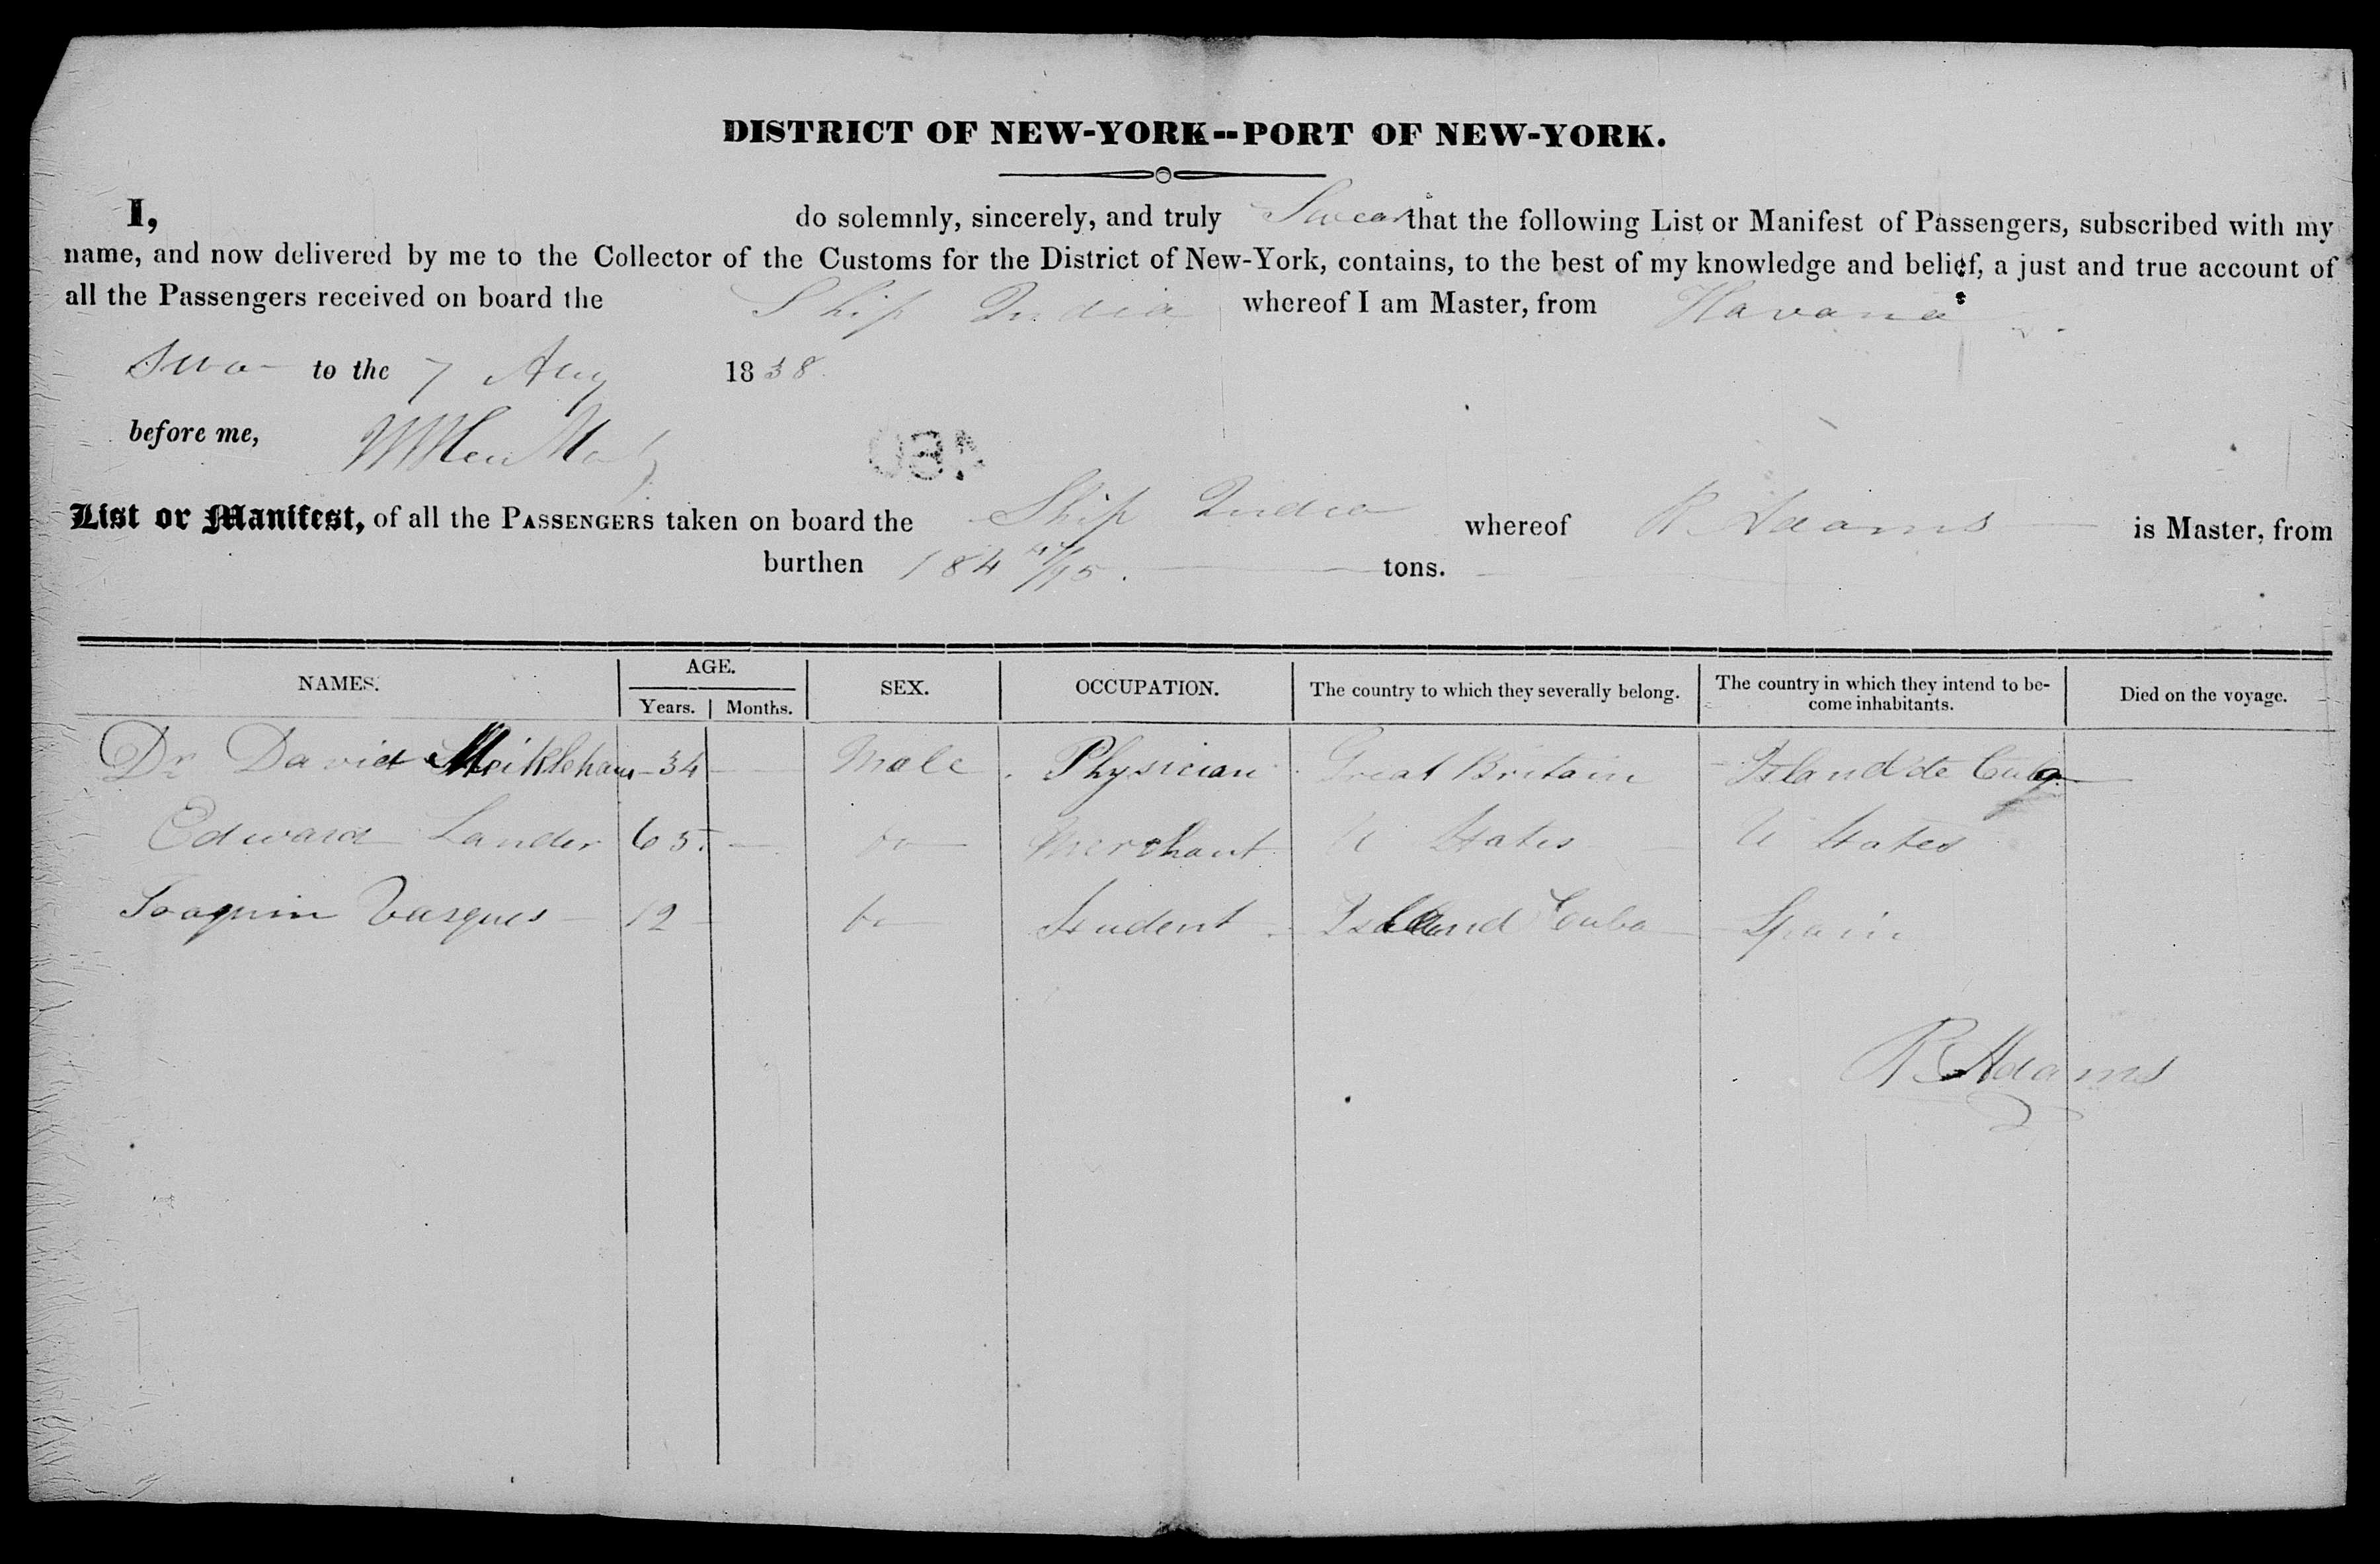 DISTRICT OF NEW-YORK--PORT OF NEW-YORK.
I, do solemnly, sincerely, and truly Swear that the following List or Manifest of Passengers, subscribed with my
name, and now delivered by me to the Collector of the Customs for the District of New-York, contains, to the best of my knowledge and belief, a just and true account of
all the Passengers received on board the Ship India whereof I am Master, from Havana
Swo to the 7 Aug 1838
before me,
List or Manifest, of all the PASSENGERS taken on board the Ship India whereof R Adams is Master, from
burthen 184 /95 tons.
NAMES. AGE. SEX. OCCUPATION. The country to which they severally belong. The country in which they intend to be-
come inhabitants. Died on the voyage.
Years. Months.
Dr David Meikleham 34 Male Physician Great Britain Island de Cuba
Edward Lander 65 do Merchant U States U States
Joaquin Vasques 12 do Student Island Cuba Spain
R Adams